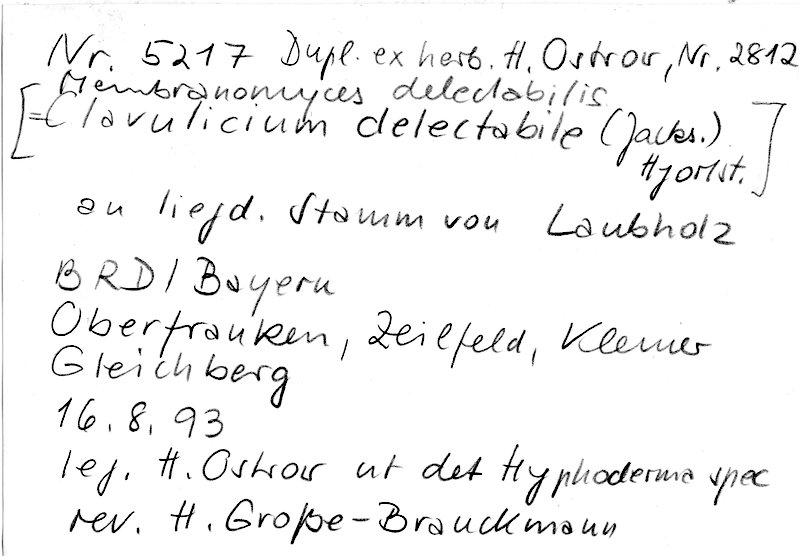 Nr. 5217 Dupl. ex herb. H. Ostrow, Nr. 2812
Membranomyces delectabilis
[=Clavulicium delectabile (Jacks.)
Hjortst.]
an liegd. Stamm von Laubholz
BRD/Bayern
Oberfranken, Zeilfeld, Kleiner
Gleichberg
16.8.93
leg. H. Ostrow ut det Hyphoderma spec
rev. H. Große-Brauckmann